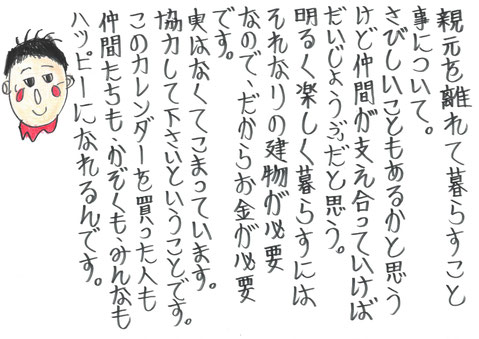 親元を離れて暮らすこと
事について。
さびしいこともあるかと思う
けど仲間が支え合っていけば
だいじょうぶだと思う。
明るく楽しく暮らすには
それなりの建物が必要
なので、だからお金が必要
です。
実はなくてこまっています。
協力して下さいということです。
このカレンダーを買った人も
仲間たちも、かぞくも、みんなも
ハッピーになれるんです。